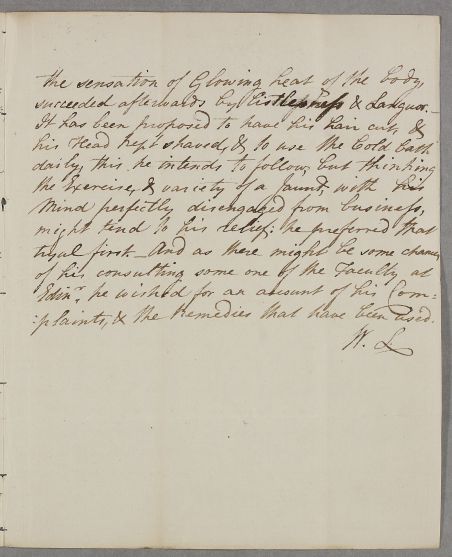 the sensation of Glowing heat of the body,
succeeded afterwards by Listlessness & Languor.—
It has been proposed to have his hair cut, &
his Head kept shaved, & to use the Cold bath
daily, this he intends to follow, but thinking
the Exercise, & variety of a Jaunt, with his
Mind perfectly disengaged from business,
might tend to his relief; he preferred that
tryal first — And as there might be some chance,
of his consulting some one of the Faculty at
Edinr. he wished for an account of his Com=
:plaints, & the Remedies that have been used.
W. L